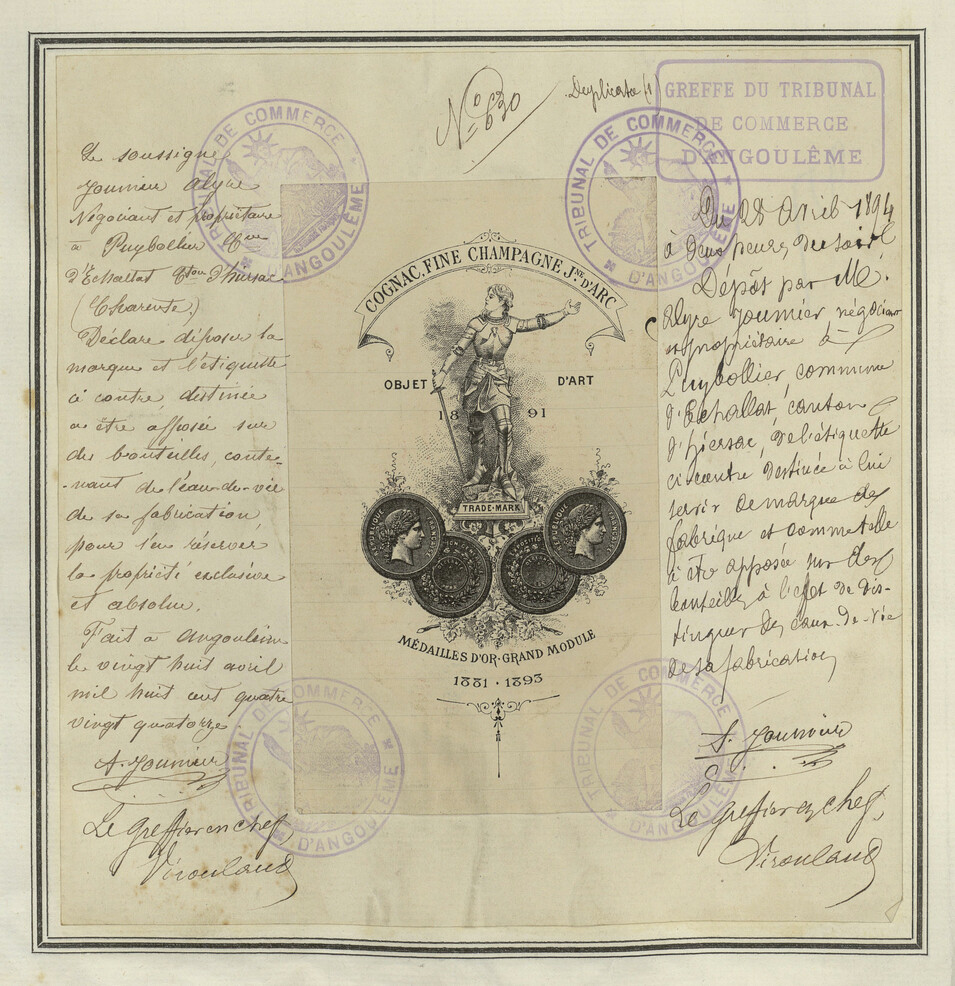 Nº 630
Duplicata (1)
GREFFE DU TRIBUNAL
DE COMMERCE
D'ANGOULÊME
TRIBUNAL DE COMMERCE
D'ANGOULÊME
TRIBUNAL DE COMMERCE
D'ANGOULÊME
Le soussigné
Jounier Alyre
Négociant et propriétaire
à Puybollier Cne
d'Echallat Cton d'hiersac
(Charente.)
Déclare déposer la
marque et l'étiquette
ci contre destinée
a être apposée sur
des bouteilles, conte-
-nant de l'eau-de-vie
de sa fabrication,
pour s'en réserver
la propriété exclusive
et absolue.
Fait à Angoulême
le vingt huit avril
mil huit cent quatre
vingt quatorze.
A. Jounier
Le Greffier en chef,
Virouland
COGNAC, FINE CHAMPAGNE JNE D'ARC
OBJET D'ART
1891
TRADE-MARK
REPUBLIQUE FRANÇAISE
MÉDAILLES D'OR·GRAND MODULE
1881 · 1893
Du 28 Avril 1894
à deux heures du soir
Dépôt par M.
Alyre Jounier négociant
et propriétaire à
Puybollier, commune
d'Echallat, canton
d'hiersac, de l'étiquette
ci contre destinée à lui
servir de marque de
fabrique et comme telle
à être apposée sur des
bouteilles à l'effet de dis-
tinguer des eaux-de-vie
de sa fabrication
A. Jounier
Le Greffier en chef,
Virouland
TRIBUNAL DE COMMERCE
D'ANGOULÊME
TRIBUNAL DE COMMERCE
D'ANGOULÊME